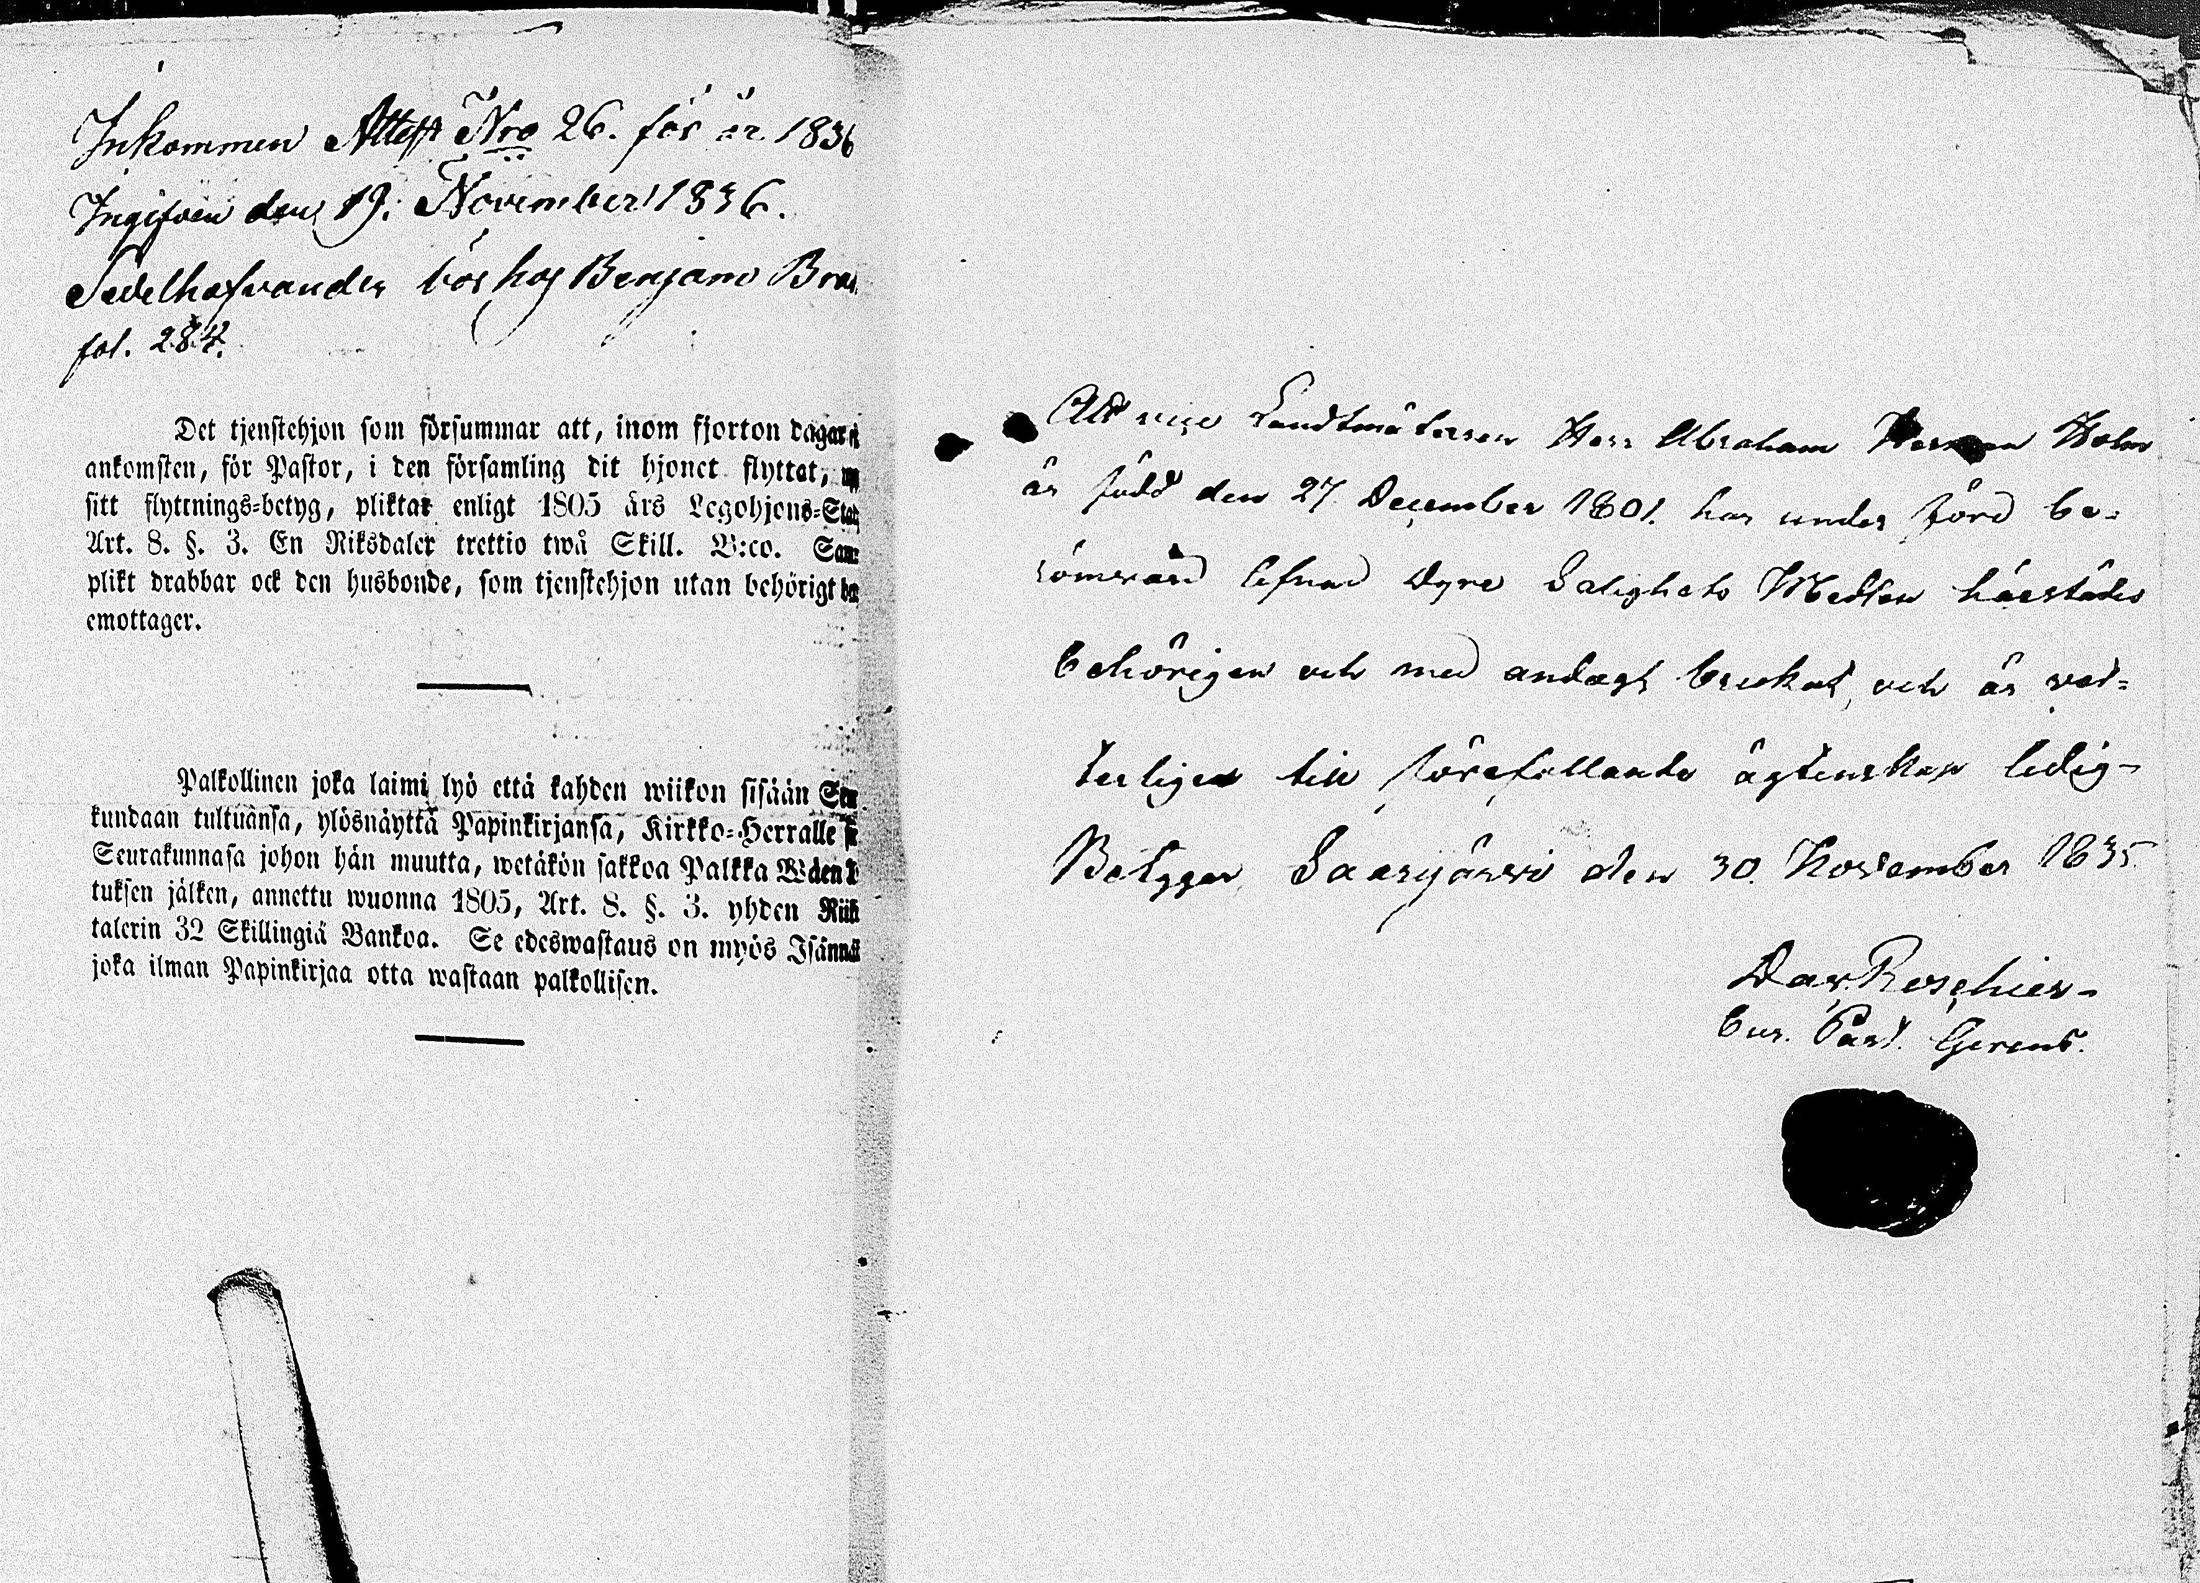 Inkommen Attest Nro 26. för år 1836
Ingifven den 19. November 1836.
Sedelhafvanden bor hos Benjam Bra
fol. 284.
Det tjenstehjon som försummar att, inom fjorton dagar
ankomsten, för Pastor, i den församling dit hjonet flyttat,
sitt flyttnings=betyg, pliktar enligt 1805 års Legohjons=Stad
Art. 8. §. 3. En Riksdaler trettio twå Skill. B:co. Sam
plikt drabbar ock den husbonde, som tjenstehjon utan behörigt be
emottager.
Palkollinen joka laimi lyö että kahden wiikon sisään Seu
kundaan tultuansa, ylösnäyttä Papinkirjansa, Kirkko=Herralle
Seurakunnasa johon hän muutta, wetäkön sakkoa Palkka Wäen
tuksen jälken, annettu wuonna 1805, Art. 8. §. 3. yhden Riik
talerin 32 Skillingiä Bankoa. Se edeswastaus on myös Isännäl
joka ilman Papinkirjaa otta wastaan palkollisen.
Att vice Landtmätaren Herr Abraham Herman Holm
är född den 27 December 1801. har under förd be=
römvärd lefnad Dyre Salighets Medlen härstädes
behörigen och med andagt brukat, och är wet=
terligen till förefallande ägtenskap ledig-
Betygar Saarijärwi den 30. November 1835.
Dav. Roschier-
Cur. Past. Gerens.